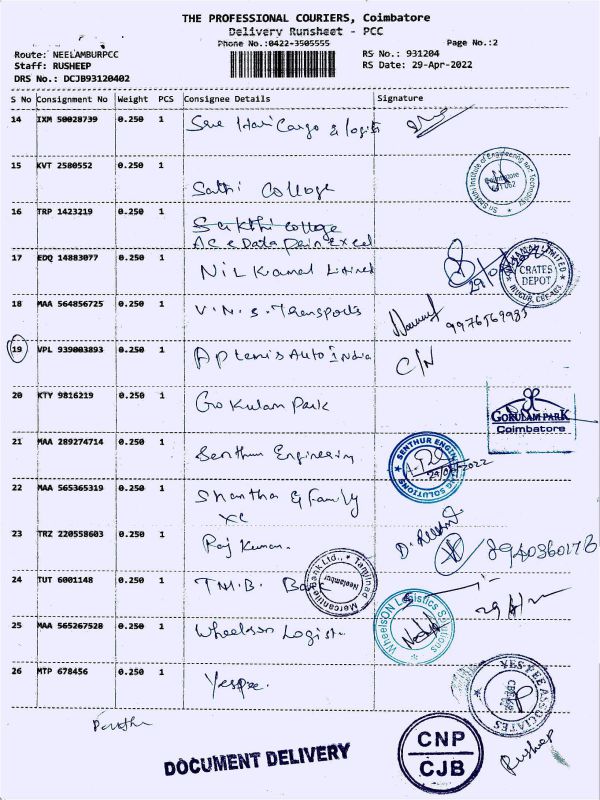 THE PROFESSIONAL COURIERS, Coimbatore
Delivery Runsheet - PCC
Phone No.:0422-3505555
Page No.:2
Route: NEELAMBURPCC
RS No.: 931204
Staff: RUSHEEP
RS Date: 29-Apr-2022
DRS No.: DCJB93120402
S No Consignment No Weight PCS Consignee Details Signature
14 IXM 50028739 0.250 1 Sree Hari Cargo & logis
15 KVT 2580552 0.250 1 Sathi College
Sri Shakthi Institute of Engineering and Technology
Coimbatore
641 062
16 TRP 1423219 0.250 1 Sakthi College
Ace Data Pain Excel
17 EDQ 14883077 0.250 1 NiL Kamal Limited
NILKAMAL LIMITED
CRATES
DEPOT
18 MAA 564856725 0.250 1 V.N.S. Transports
19 VPL 939003893 0.250 1 Aptemis Auto India C/N
20 KTY 9816219 0.250 1 Gokulam Park
GOKULAM PARK
Coimbatore
21 MAA 289274714 0.250 1 Senthur Engineering
SENTHUR ENGINEERING SOLUTIONS
22 MAA 565365319 0.250 1 Shantha & Family
23 TRZ 220558603 0.250 1 Raj Kumar. 8940360178
24 TUT 6001148 0.250 1 T.M.B. Bank
Tamilnad Mercantile Bank Ltd.,
Neelambur
25 MAA 565267528 0.250 1 Wheelson Logist
WheelsON Logistics Solutions
26 MTP 678456 0.250 1 Yespee.
YES PEE ASSOCIATES
DOCUMENT DELIVERY
CNP
CJB
Rusheep